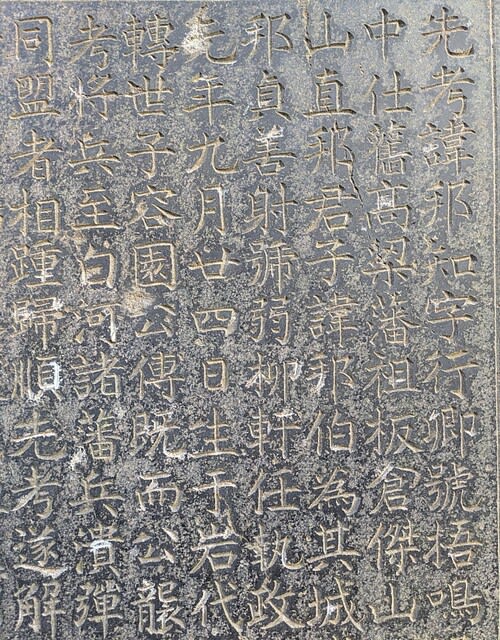 先考諱邦知字行卿號梧鳴
中仕舊高梁藩祖板倉傑山
山直邦君子諱邦伯為其城
邦貞善射號蒻柳軒任執政
元年九月廿四日生于岩代
轉世子容園公傅既而公襲
考将兵至白河諸藩兵潰彈
同盟者相踵歸順先考遂解